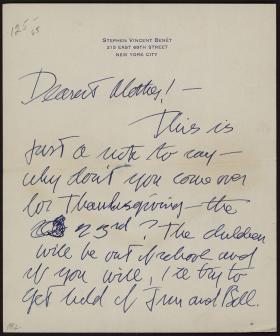 125-
65
STEPHEN VINCENT BENÉT
215 EAST 69TH STREET
NEW YORK CITY
Dearest Mother! —
This is
just a note to say —
why don't you come over
for Thanksgiving — the
23rd? The children
will be out of school and
if you will, I'll try to
get hold of Jim and Bill.